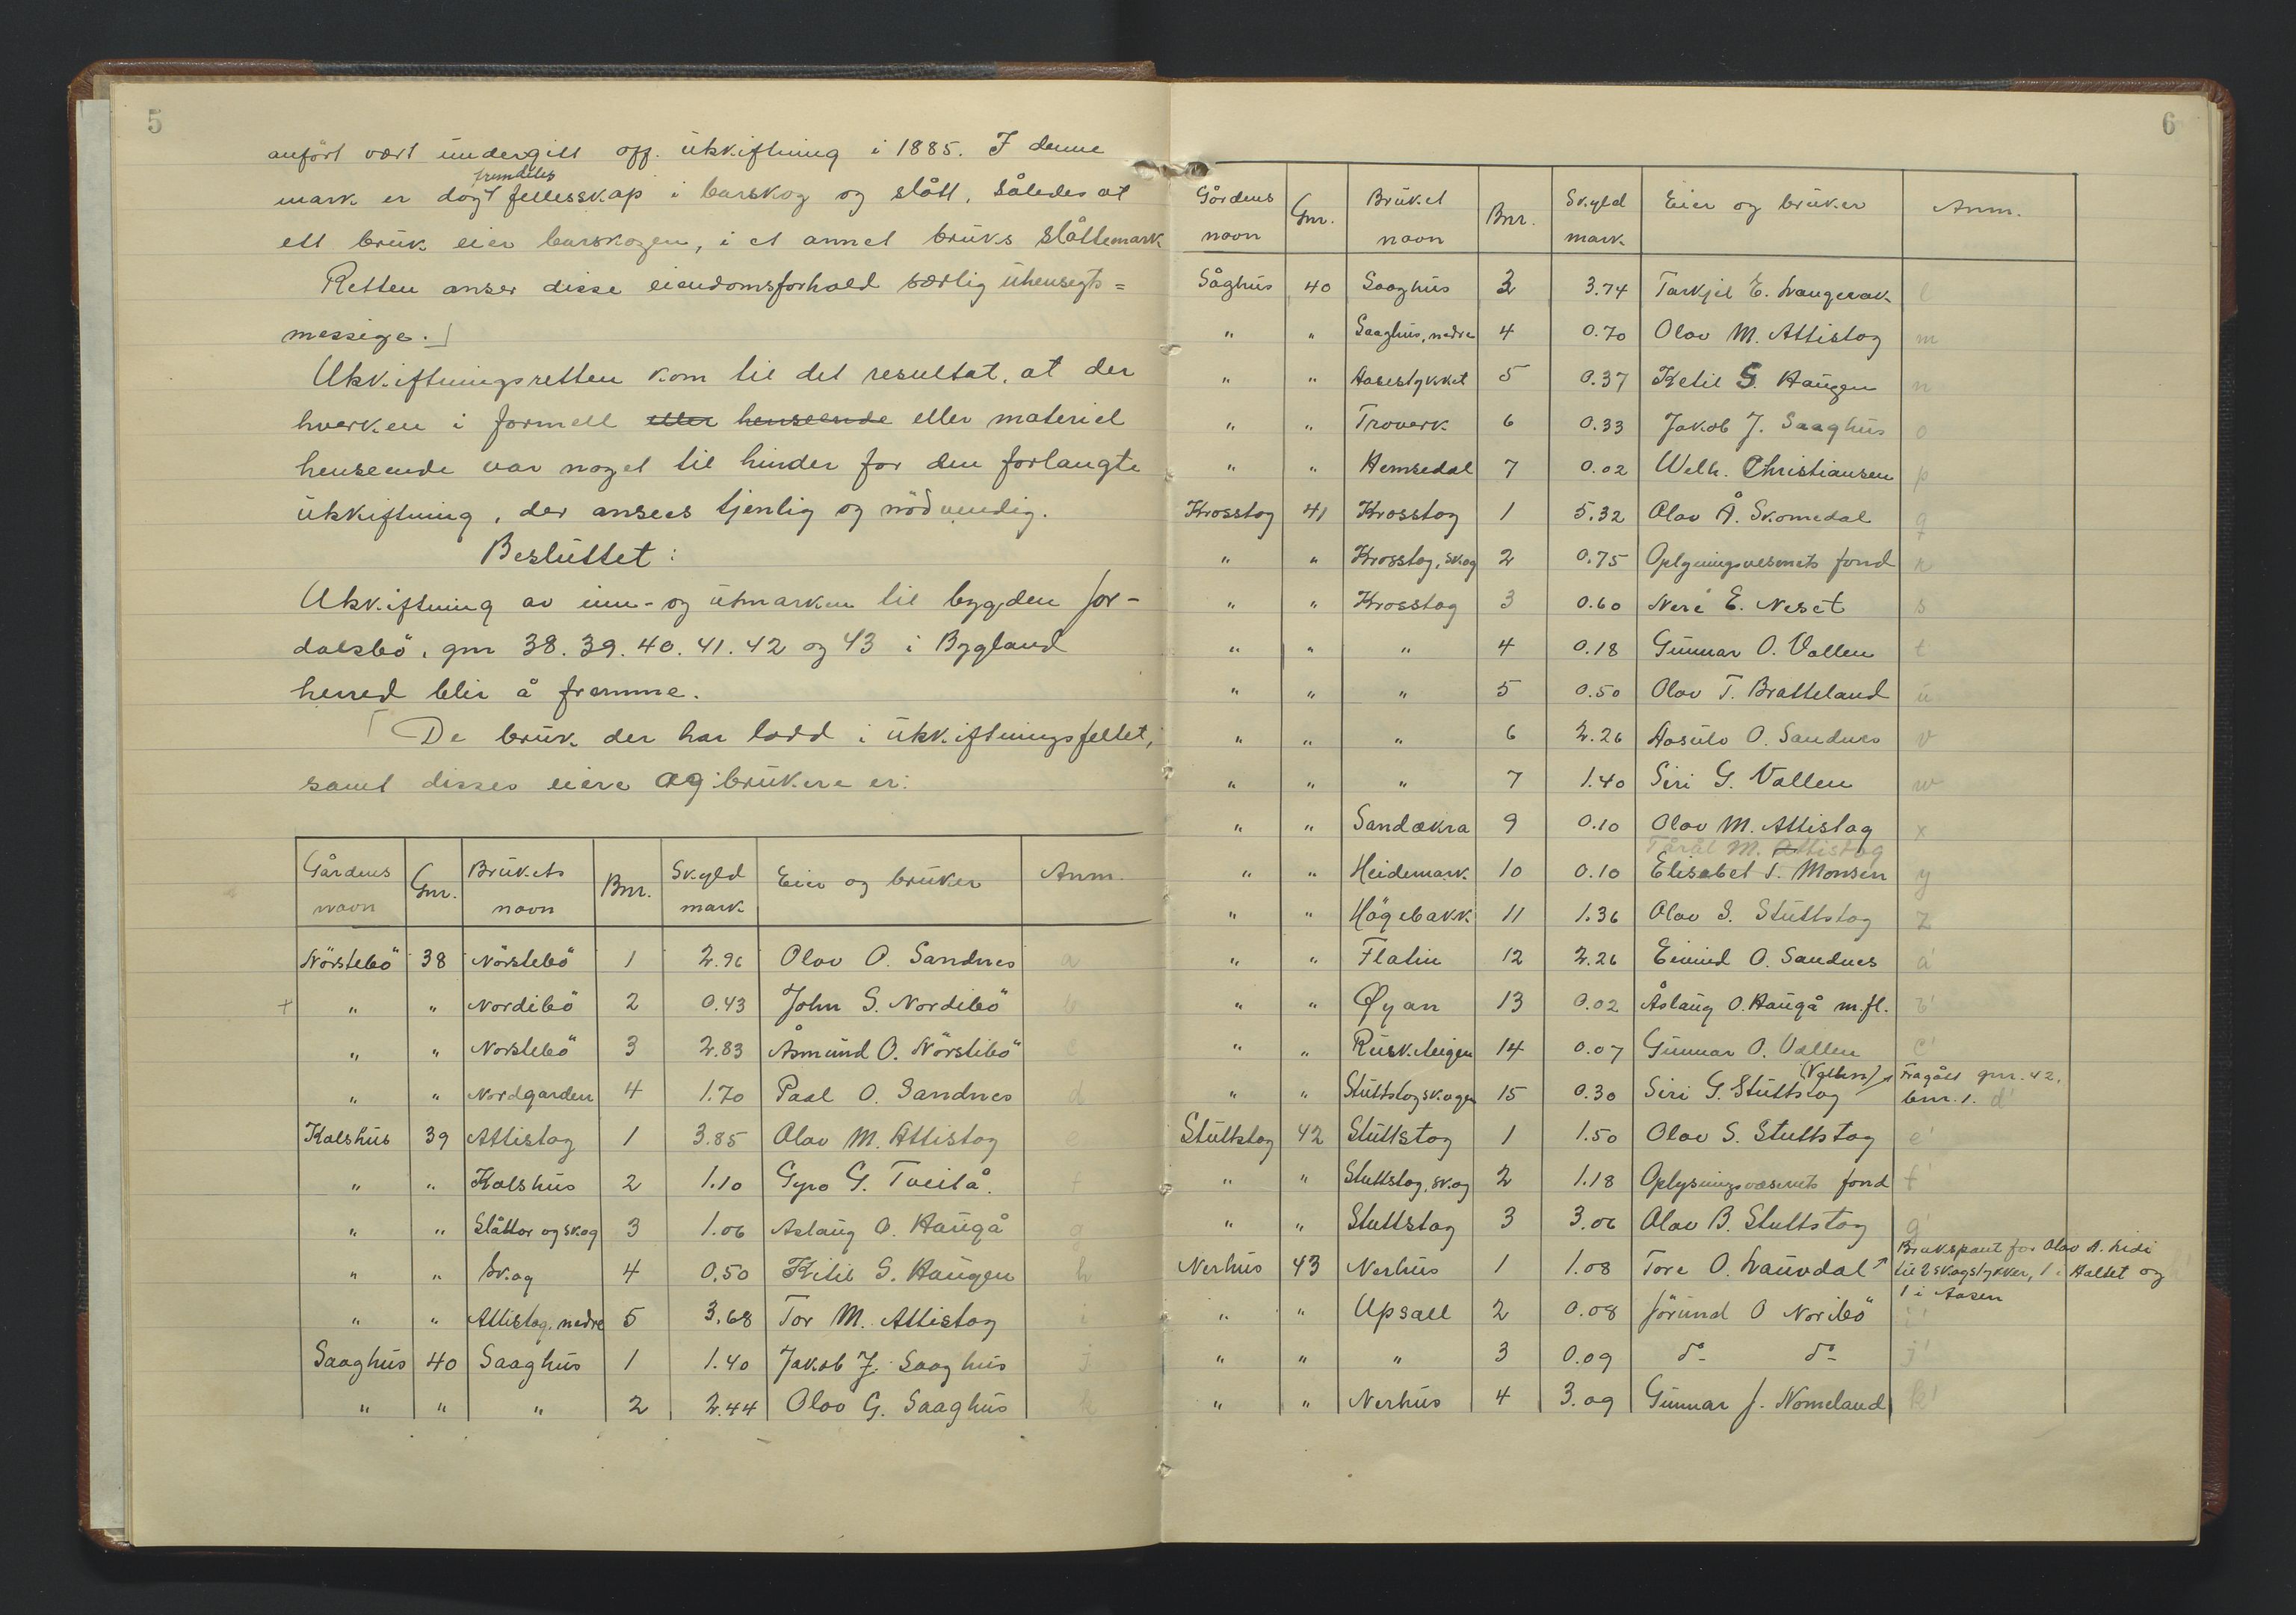 5
anfört vært undergitt off. utskiftning i 1885. I denne
fremdeles
mark er dog fellesskap i barskog og slått, således at
ett bruk eier barskogen, i et annet bruks slåttemark
Retten anser disse eiendomsforhold særlig uhensigts=
messige.
Utskiftningsretten kom til det resultat, at der
hverken i formell eller henseende eller materiel
henseende var noget til hinder for den forlangte
utskiftning, der ansees tjenlig og nödvendig.
Besluttet:
Utskiftning av inn- og utmarken til bygden Jor-
dalsbö, gnr 38. 39. 40. 41. 42 og 43 i Bygland
herred blir å fremme.
De bruk der har lodd i utskiftningsfeltet,
samt disses eiere og brukere er:
Gårdens navn | Gnr. | Brukets navn | Bnr. | Skyld mark | Eier og bruker | Anm.
Nörstebö | 38 | Nörstebö | 1 | 2.96 | Olav O. Sandnes | a
+ " | " | Nordibö | 2 | 0.43 | John S. Nordibö | b
" | " | Norstebö | 3 | 2.83 | Åsmund O. Nörstibö | c
" | " | Nordgarden | 4 | 1.70 | Paal O. Sandnes | d
Kalshus | 39 | Attistog | 1 | 3.85 | Olav M. Attistog | e
" | " | Kalshus | 2 | 1.10 | Gyro G. Tveitå. | f
" | " | Slåttor og skog | 3 | 1.06 | Aslaug O. Haugå | g
" | " | Skog | 4 | 0.50 | Ketil S. Haugen | h
" | " | Attistog, nedre | 5 | 3.68 | Tor M. Attistog | i
Saaghus | 40 | Saaghus | 1 | 1.40 | Jakob J. Saaghus | j
" | " | " | 2 | 2.44 | Olav G. Saaghus | k
6
Gårdens navn | Gnr. | Bruket navn | Bnr. | Skyld mark | Eier og bruker | Anm.
Såghus | 40 | Saaghus | 3 | 3.74 | Tarkjel E. Langerak | l
" | " | Saaghus, nedre | 4 | 0.70 | Olav M. Attistog | m
" | " | Aasestykket | 5 | 0.37 | Ketil S. Haugen | n
" | " | Troverk | 6 | 0.33 | Jakob J. Saaghus | o
" | " | Hemsedal | 7 | 0.02 | Welh. Christiansen | p
Krosstog | 41 | Krosstog | 1 | 5.32 | Olav Å. Skomedal | q
" | " | Krosstog, skog | 2 | 0.75 | Oplysningsvesenets fond | r
" | " | Krosstog | 3 | 0.60 | Neri E. Neset | s
" | " | " | 4 | 0.18 | Gunnar O. Vallen | t
" | " | " | 5 | 0.50 | Olav T. Bratteland | u
" | " | " | 6 | 2.26 | Aasulv O. Sandnes | v
" | " | " | 7 | 1.40 | Siri G. Vallen | w
" | " | Sandakra | 9 | 0.10 | Olav M. Attistog | x
Tarål M. Attistog
" | " | Heidemark | 10 | 0.10 | Elisabet T. Monsen | y
" | " | Högebakk | 11 | 1.36 | Olav S. Stuttstog | z
" | " | Flatin | 12 | 2.26 | Eivind O. Sandnes | a'
" | " | Øyan | 13 | 0.02 | Åslaug O. Haugå m.fl. | b'
" | " | | 14 | 0.07 | Gunnar O. Vallen | c'
" | " | Stuttstogskogen | 15 | 0.30 | Siri G. Stuttstog (Vallen) | Fragått gnr. 42, bnr. 1. d'
Stuttstog | 42 | Stuttstog | 1 | 1.50 | Olav S. Stuttstog | e'
" | " | Stuttstog, skog | 2 | 1.18 | Oplysningsvæsenets fond | f'
" | " | Stuttstog | 3 | 3.06 | Olav B. Stuttstog | g'
Nerhus | 43 | Nerhus | 1 | 1.08 | Tore O. Lauvdal | Brukspant for Olav A. Lidi til 2 skogstykker, 1 i Haltet og 1 i Aasen
" | " | Upsall | 2 | 0.08 | Jörund O Noribö | i'
" | " | " | 3 | 0.09 | do do | j'
" | " | Nerhus | 4 | 3.09 | Gunnar J. Nomeland | k'